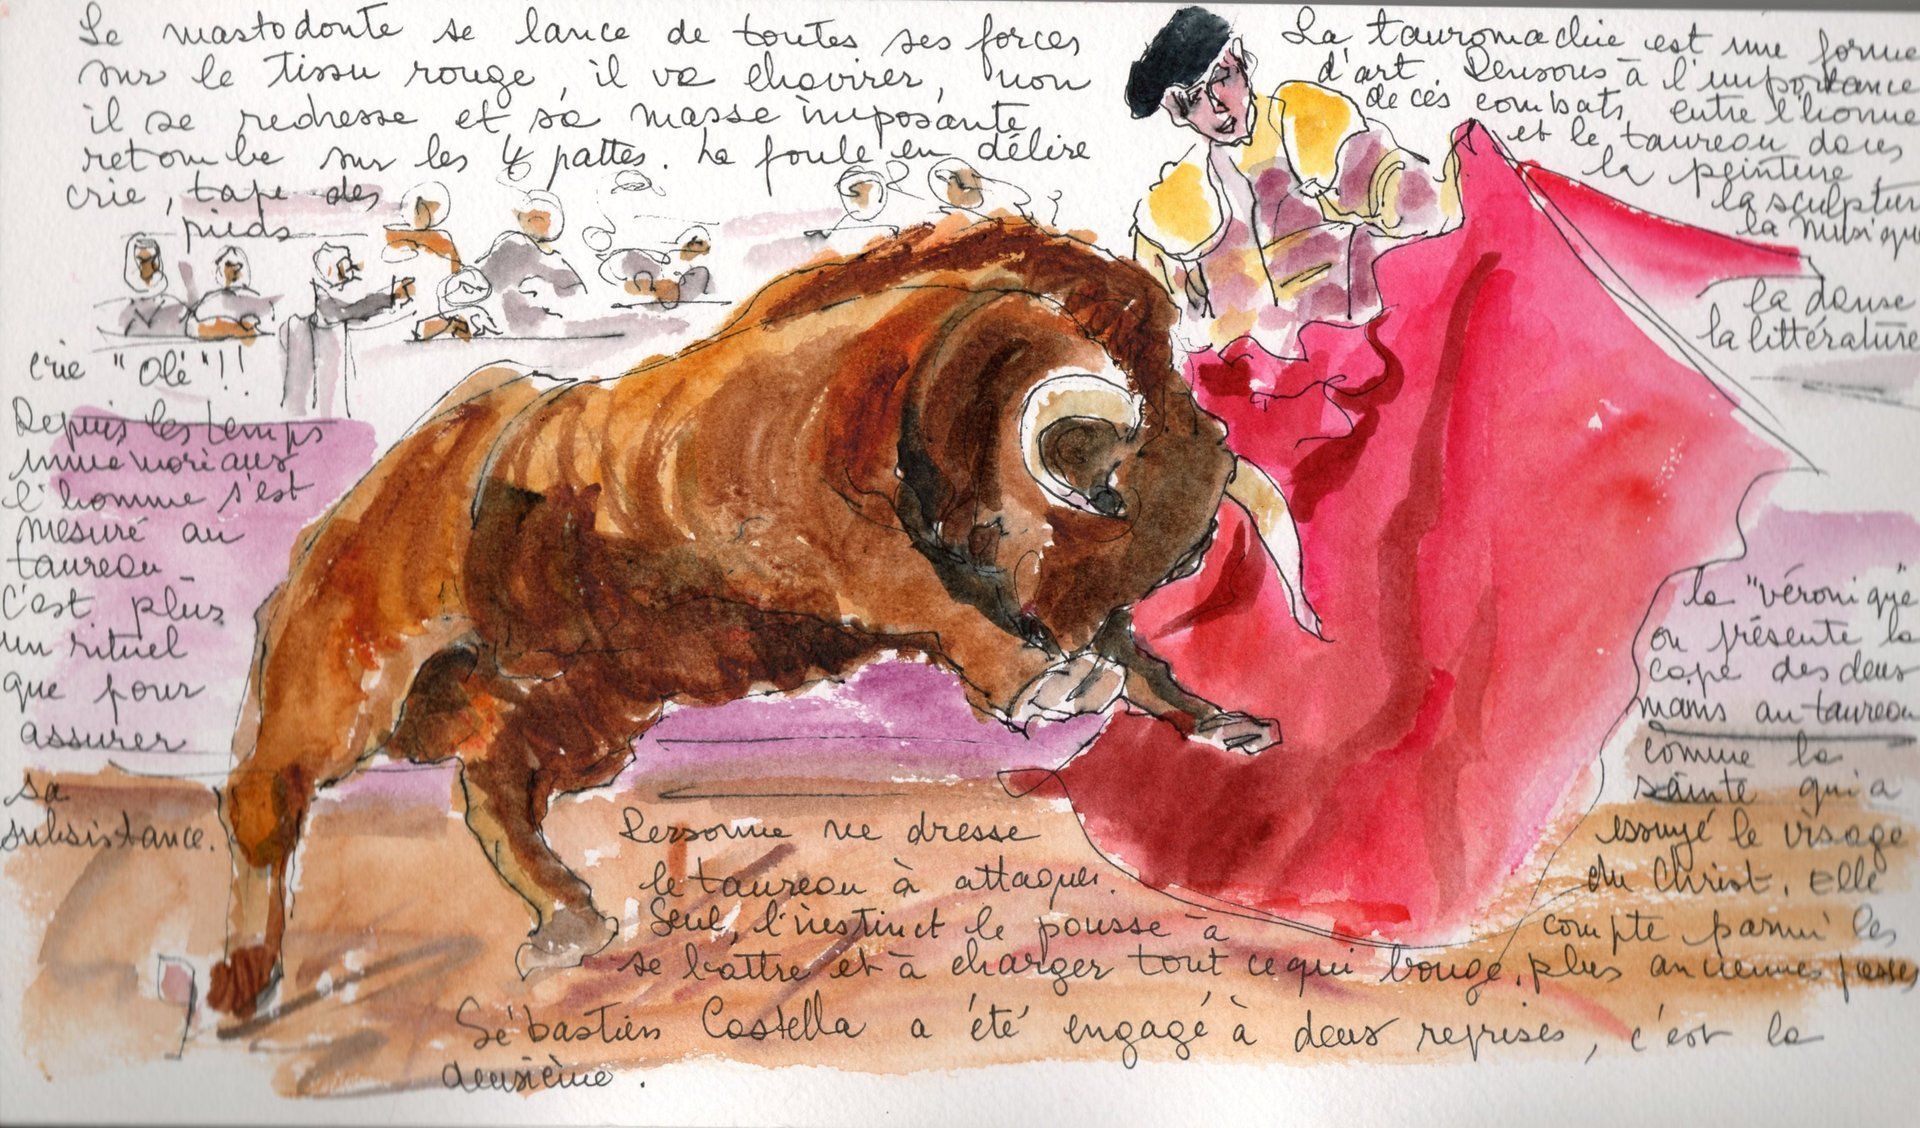 Le mastodonte se lance de toutes ses forces
sur le tissu rouge, il va chavirer, non
il se redresse et sa masse imposante
retombe sur les 4 pattes. La foule en délire
crie, tape des
pieds
crie "Olé"!!
Depuis les temps
immémoriaux
l'homme s'est
mesuré au
taureau
C'est plus
un rituel
que pour
assurer
sa
subsistance.
La tauromachie est une forme
d'art. Pensons à l'importance
de ces combats entre l'homme
et le taureau dans
la peinture,
la sculpture
la musique
la danse
la littérature
la "véronique"
on présente la
cape des deux
mains au taureau
comme la
sainte qui a
essuyé le visage
du Christ. Elle
compte parmi les
plus anciennes passes
Personne ne dresse
le taureau à attaquer.
Seul, l'instinct le pousse à
se battre et à charger tout ce qui bouge.
Sébastien Castella a été engagé à deux reprises, c'est la
deuxième.